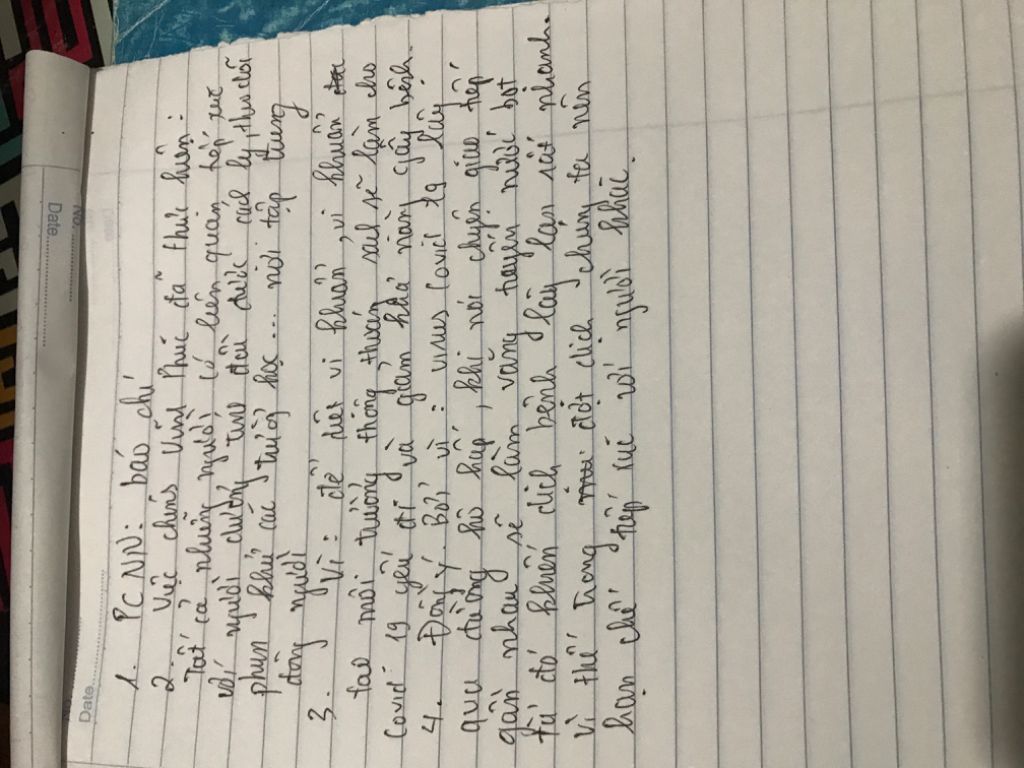 No.
Date
Date
1. PCNN: báo chí
2. Việc chính Vĩnh Phúc đã thực hiện:
Tất cả những người có liên quan, tiếp xúc
với người dương tính đều được cách ly, thực hiện
phun khử các trường học... nơi tập trung
đông người
3. Vì: để diệt vi khuẩn, vi khuẩn
tao môi trường thông thoáng sạch sẽ làm cho
Covid 19 yếu đi và giảm khả năng gây bệnh.
4. Đồng ý. Bởi vì: virus Covid 19 lây
qua đường hô hấp, khi nói chuyện giao tiếp
gần nhau sẽ làm văng tuyến nước bọt
từ đó khiến dịch bệnh lây lan rất nhanh.
Vì thế trong đợt dịch chúng ta nên
hạn chế tiếp xúc với người khác.